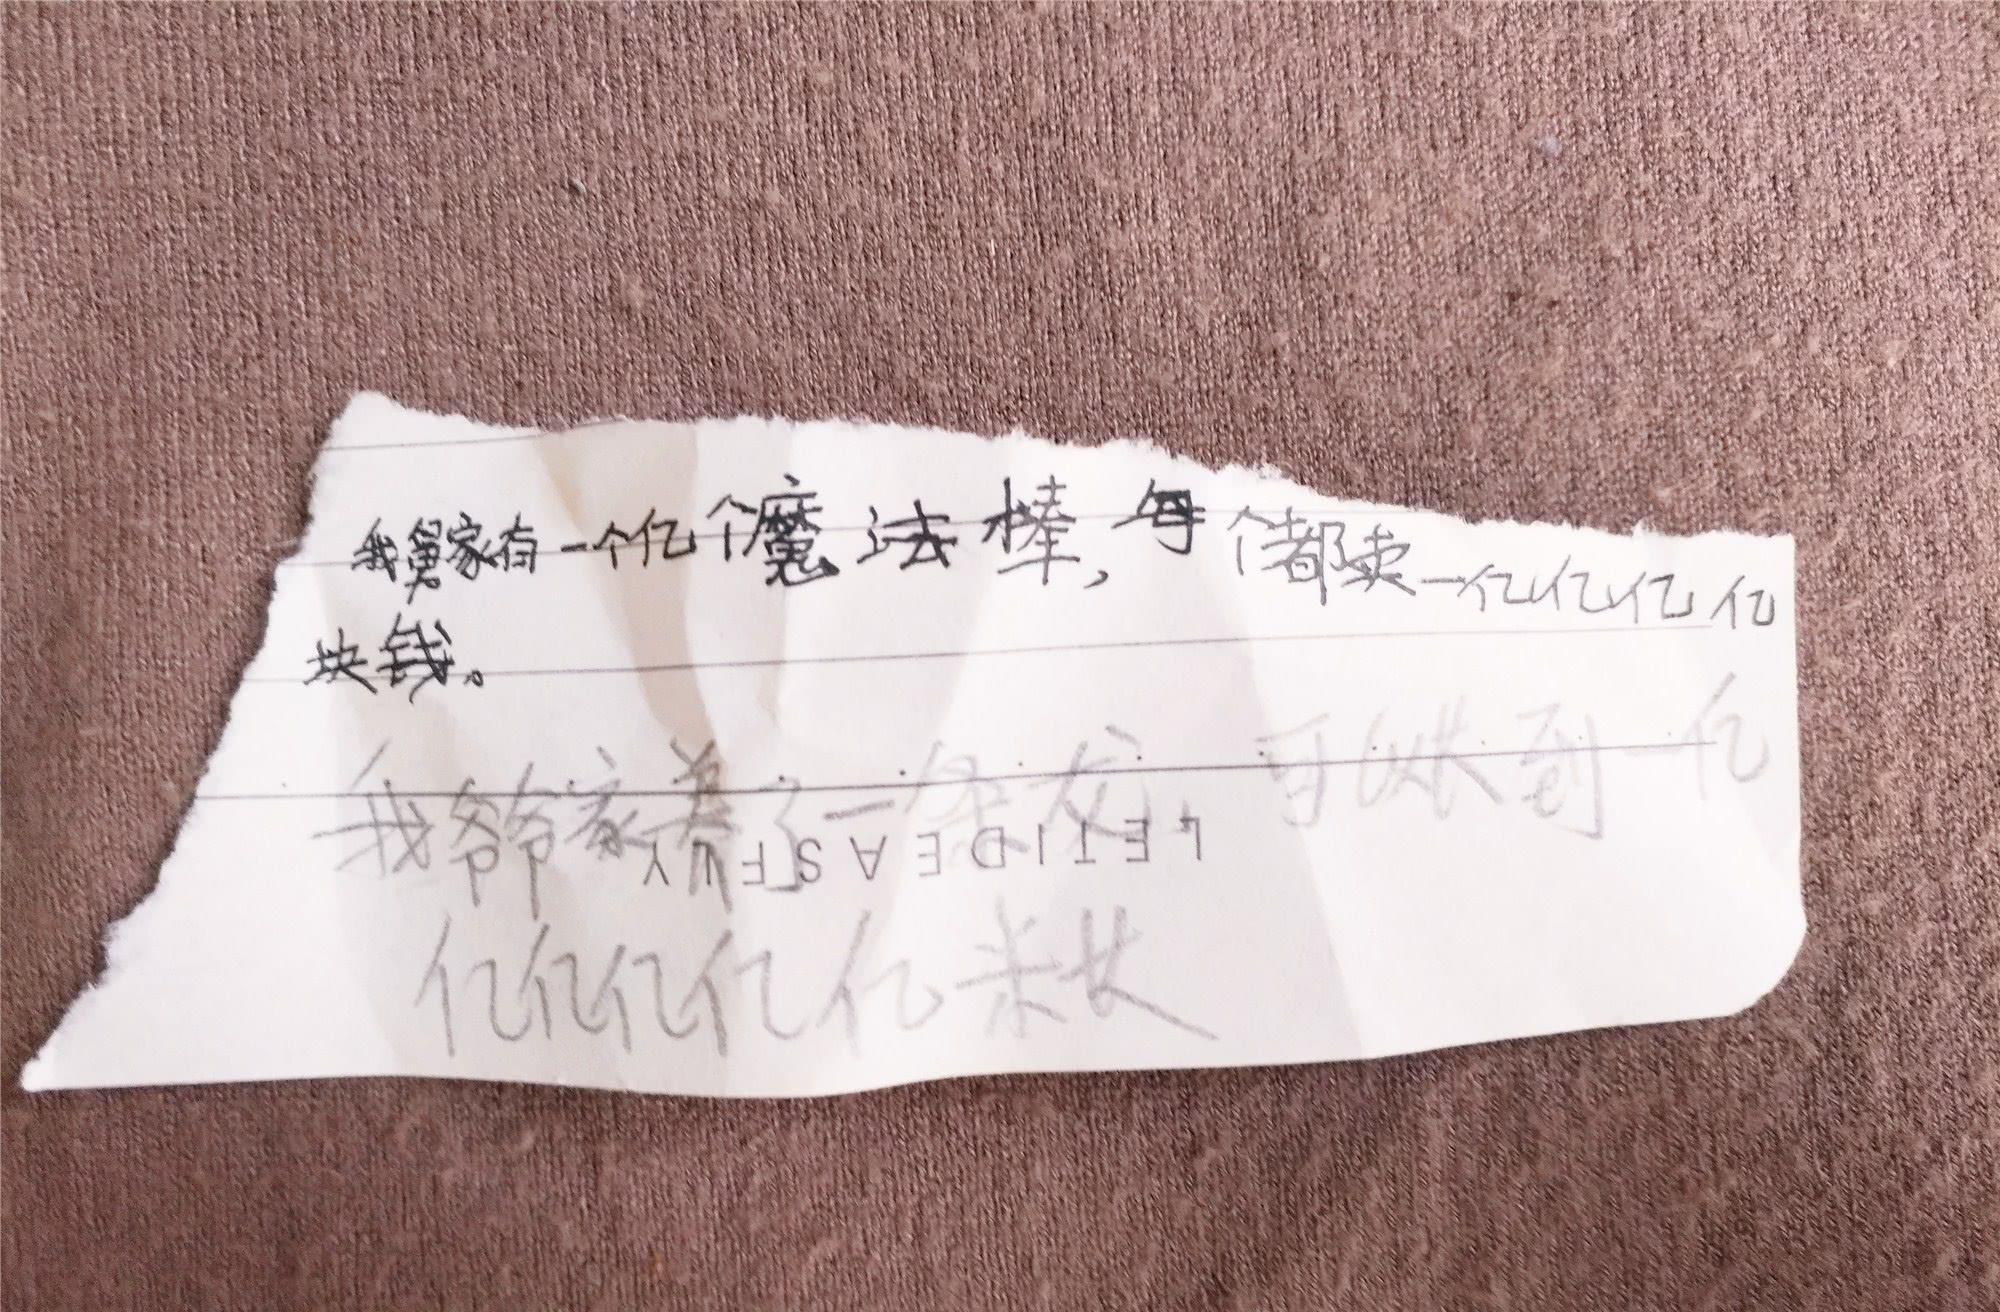 我舅家有一个亿个魔法棒，每个都卖一亿亿亿亿
块钱。
我爷爷家养了一条龙，可以长到一亿
LETIDEASFLY
亿亿亿亿亿米长